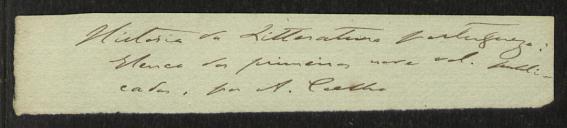 Historia da Litteratura portugueza:
Elenco dos primeiros nove vol. publi-
cados, por A. Coelho